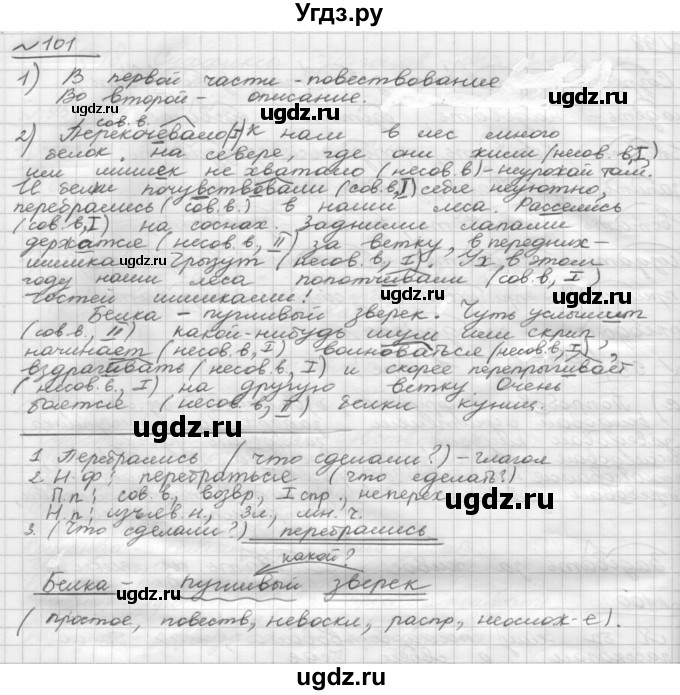 Угдз.ру
№101
1) В первой части - повествование
Во второй - описание.
сов. в.
2) Перекочевало(I) к нам в лес много
белок. На севере, где они жили (несов. в, I)
им шишек не хватало (несов. в) - неурожай там.
И белки почувствовали (сов. в, I) себе неуютно,
перебрались (сов. в.) в наши леса. Расселись
(сов. в, I) на соснах. Задними лапами
держатся (несов. в, II) за ветку, в передних -
шишка. Грызут (несов. в, I). Уж в этом
году наши леса попотчивали (сов. в, I)
гостей шишками!
Белка - пугливый зверек. Чуть услышит
(сов. в, II) какой-нибудь шум или скрип,
начинает (несов. в, I) волноваться (несов. в, I),
вздрагивать (несов. в, I) и скорее перепрыгивает
(несов. в, I) на другую ветку. Очень
боятся (несов. в, II) белки куниц.
угдз.ру угдз.ру
1. Перебрались (что сделали?) - глагол
2. Н.ф: перебраться (что сделать?)
П.п: сов. в, возвр, I спр, неперех
Н.п: изъяв. н, 3 л, мн. ч.
3. (Что сделали?) перебрались
какой?
Белка - пугливый зверек
(простое, повеств, невоскл, распр, неослож-е).
угдз.ру угдз.ру